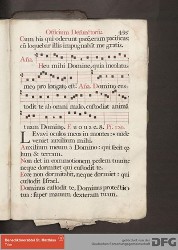 Officium Defunctorum. 495
Cum his qui oderunt pacem eram pacificus:
cū loquebar illis impugnabāt me gratis.
Aña.
Heu mihi Domine, quia incolatus
meus prolongatus est. Aña. Dominus cus-
todit te ab omni malo, custodiat animā
tuam Dominus.
Levavi oculos meos in montes: unde
veniet auxilium mihi.
Auxilium meum a Domino: qui fecit cœ-
lum & terram.
Non det in commotionem pedem tuum:
neque dormitet qui custodit te.
Ecce non dormitabit, neque dormiet: qui
custodit Israel.
Dominus custodit te, Dominus protectio
tua: super manum dexteram tuam.
DFG